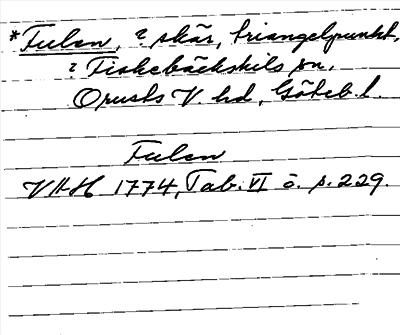 *Fulen, ? skär, triangelpunkt,
? Fiskebäckskils sn,
Orusts V. hd, Göteb. l.
Fulen
VAH 1774, Tab. VI o. s. 229.